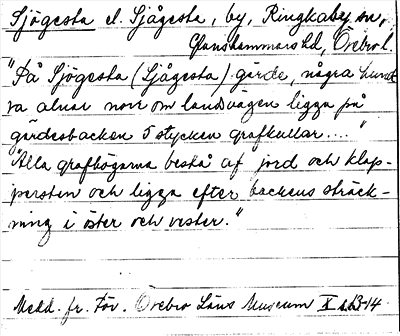 Sjögesta el. Sjågesta, by, Ringkaby sn,
Glanshammars hd, Örebro l.
"På Sjögesta (Sjågesta) gärde, några hund
ra alnar norr om landsvägen ligga på
gärdesbacken 5 stycken grafkullar...."
"Alla grafhögarna bestå af jord och klap-
persten och ligga efter backens sträck-
ning i öster och vester."
Medd. fr. För. Örebro Läns Museum X s. 13-14